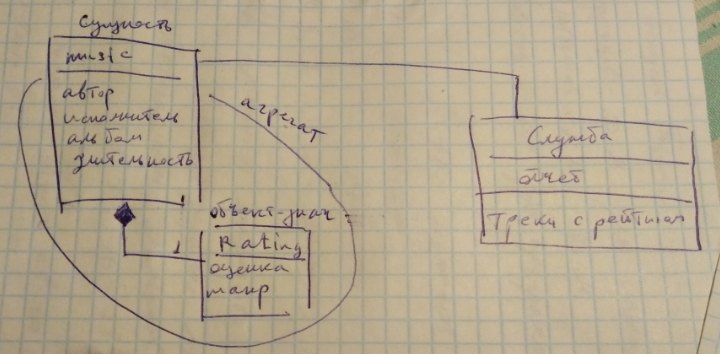 Сущность
music
автор
исполнитель
альбом
длительность
1
агрегат
объект-знач
1
Rating
оценка
жанр
Служба
отчет
Треки с рейтингом